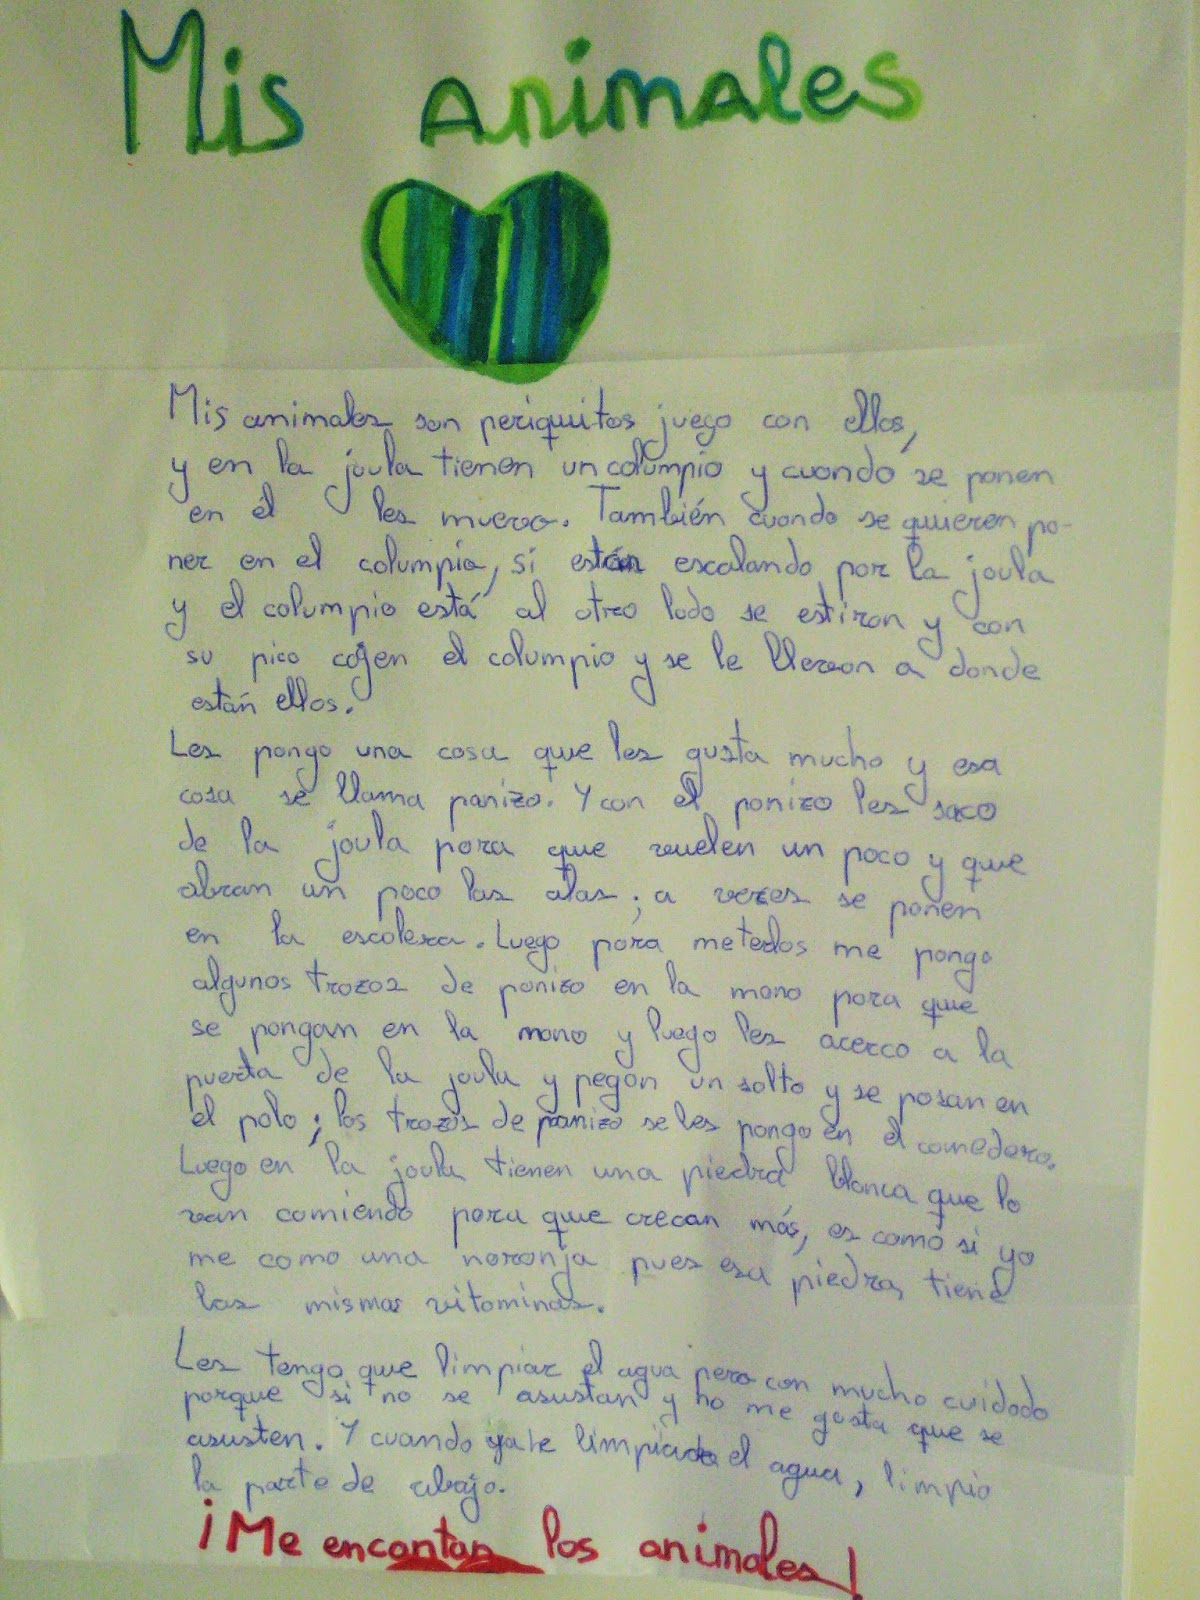 Mis animales
Mis animales son periquitos juego con ellos,
y en la joula tienen un columpio y cuando se ponen
en él les muevo. También cuando se quieren po-
ner en el columpio, si están escalando por la joula
y el columpio está al otro lado se estiran y con
su pico cogen el columpio y se le llevan a donde
están ellos.
Les pongo una cosa que les gusta mucho y esa
cosa se llama panizo. Y con el panizo les saco
de la joula para que vuelen un poco y que
abran un poco las alas; a vezes se ponen
en la escalera. Luego para meterlos me pongo
algunos trozos de panizo en la mano para que
se pongan en la mano y luego les acerco a la
puerta de la joula y pegan un salto y se posan en
el palo; los trozos de panizo se les pongo en el comedero.
Luego en la joula tienen una piedra blanca que lo
van comiendo para que crecan más, es como si yo
me como una naranja pues esa piedra tiene
las mismas vitaminas.
Les tengo que limpiar el agua pero con mucho cuidado
porque si no se asustan y no me gusta que se
asusten. Y cuando ya he limpiado el agua, limpio
la parte de abajo.
¡Me encantan los animales!